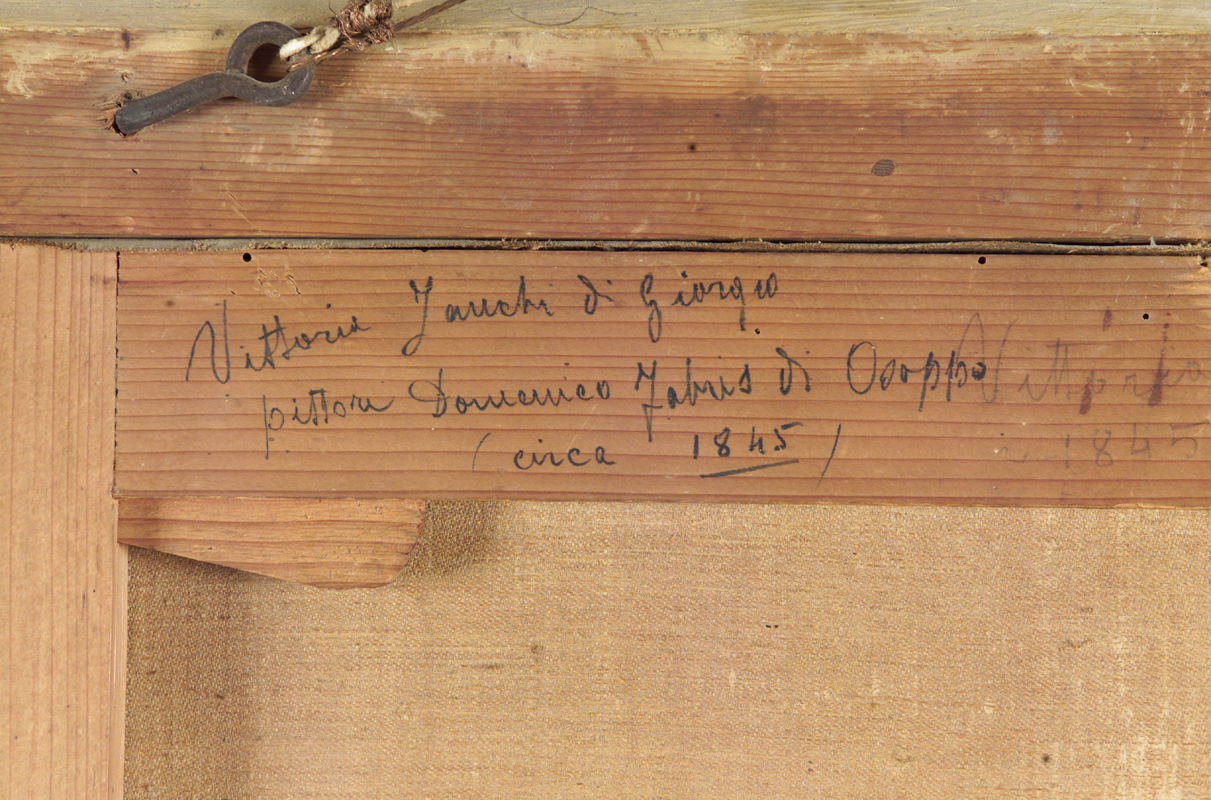 Vittoria di Giorgio
pittore Domenico Fabris di Osoppo
(circa 1845)
1845